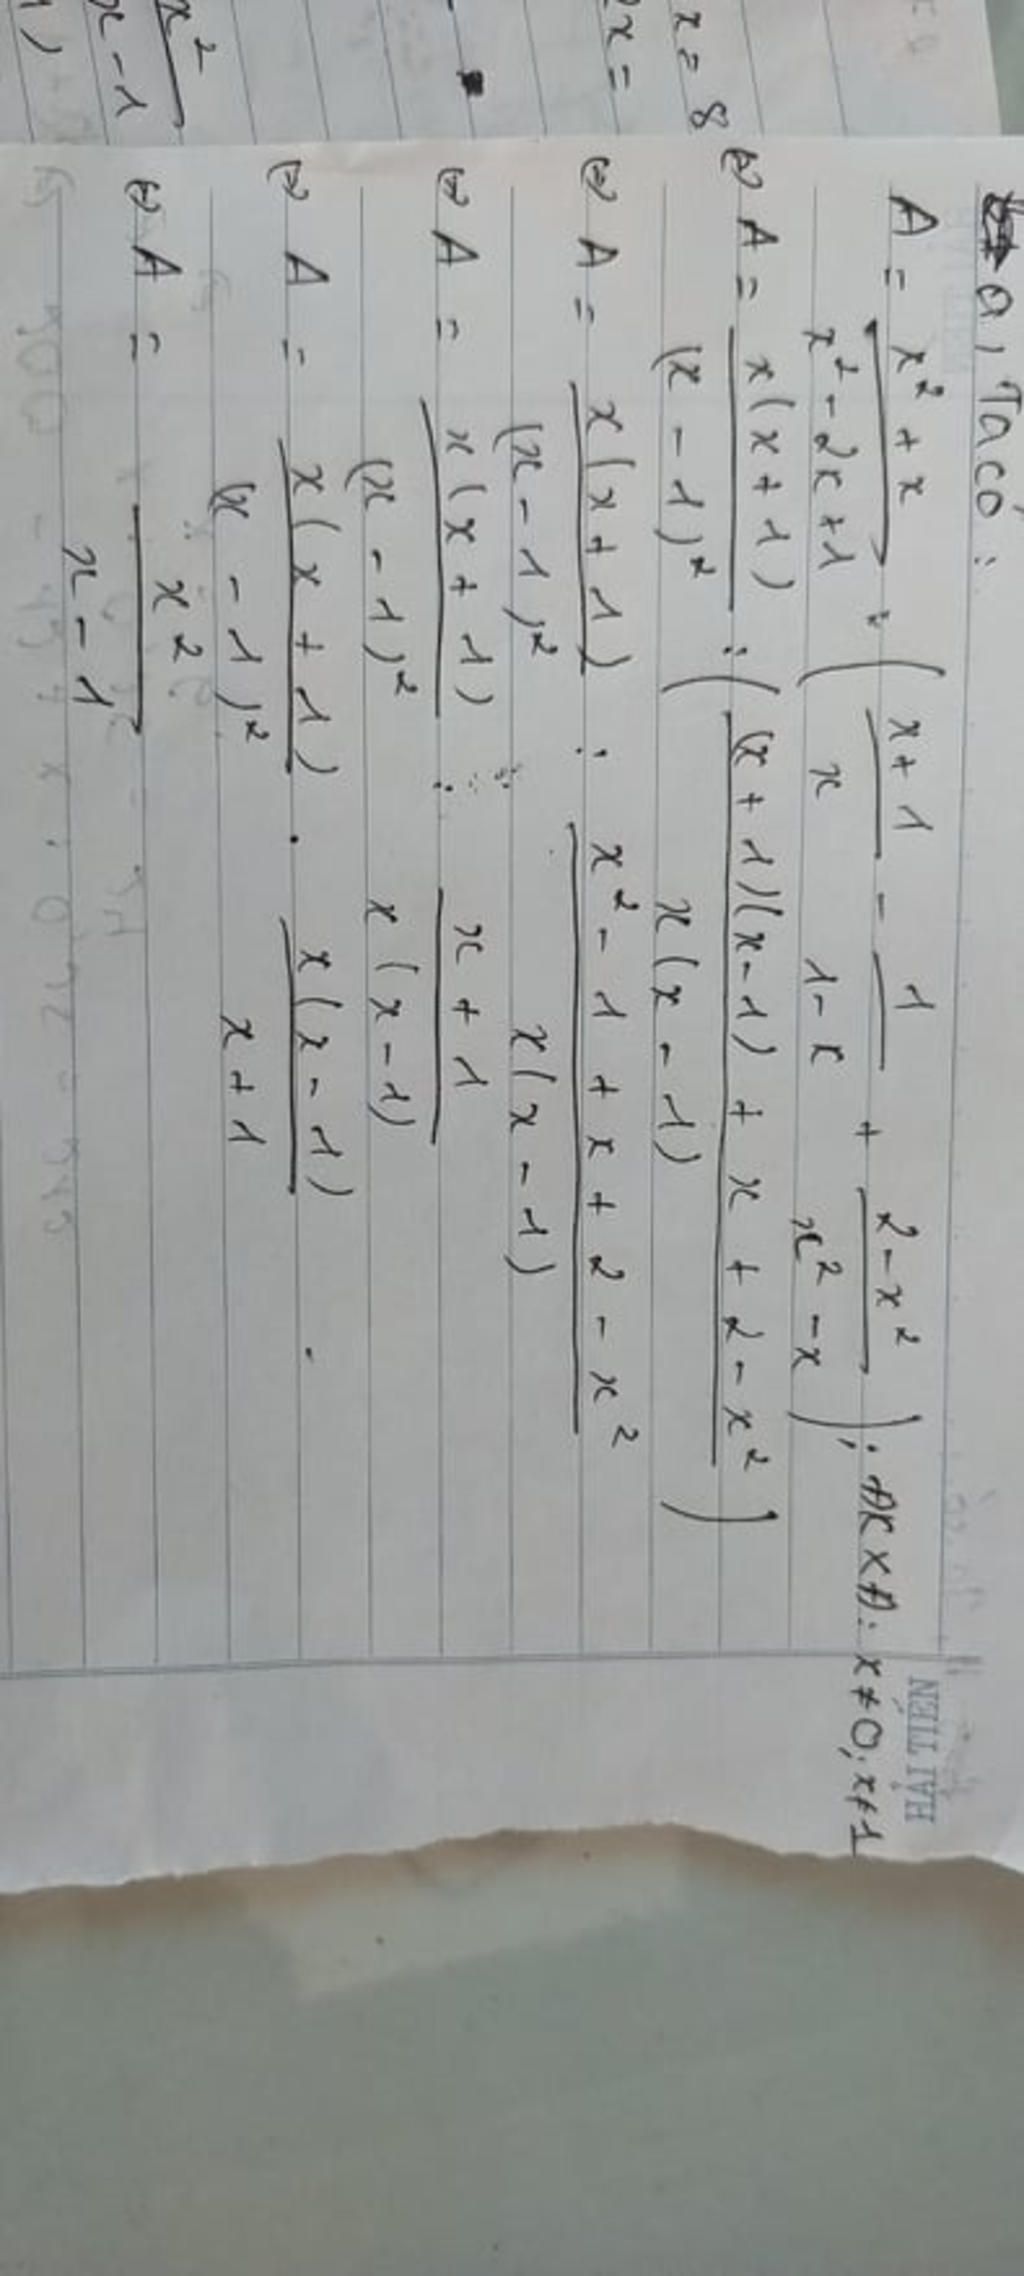 a, Ta có:
A = \frac{x^2 + x}{x^2 - 2x + 1} : ( \frac{x+1}{x} - \frac{1}{1-x} + \frac{2-x^2}{x^2-x} ); ĐKXĐ: x ≠ 0; x ≠ 1
(=) A = \frac{x(x+1)}{(x-1)^2} : ( \frac{(x+1)(x-1) + x + 2 - x^2}{x(x-1)} )
(=) A = \frac{x(x+1)}{(x-1)^2} : \frac{x^2 - 1 + x + 2 - x^2}{x(x-1)}
(=) A = \frac{x(x+1)}{(x-1)^2} : \frac{x+1}{x(x-1)}
(=) A = \frac{x(x+1)}{(x-1)^2} . \frac{x(x-1)}{x+1}
(=) A = \frac{x^2}{x-1}
HẢI TIẾN
x = 8
x =
x^2
x - 1